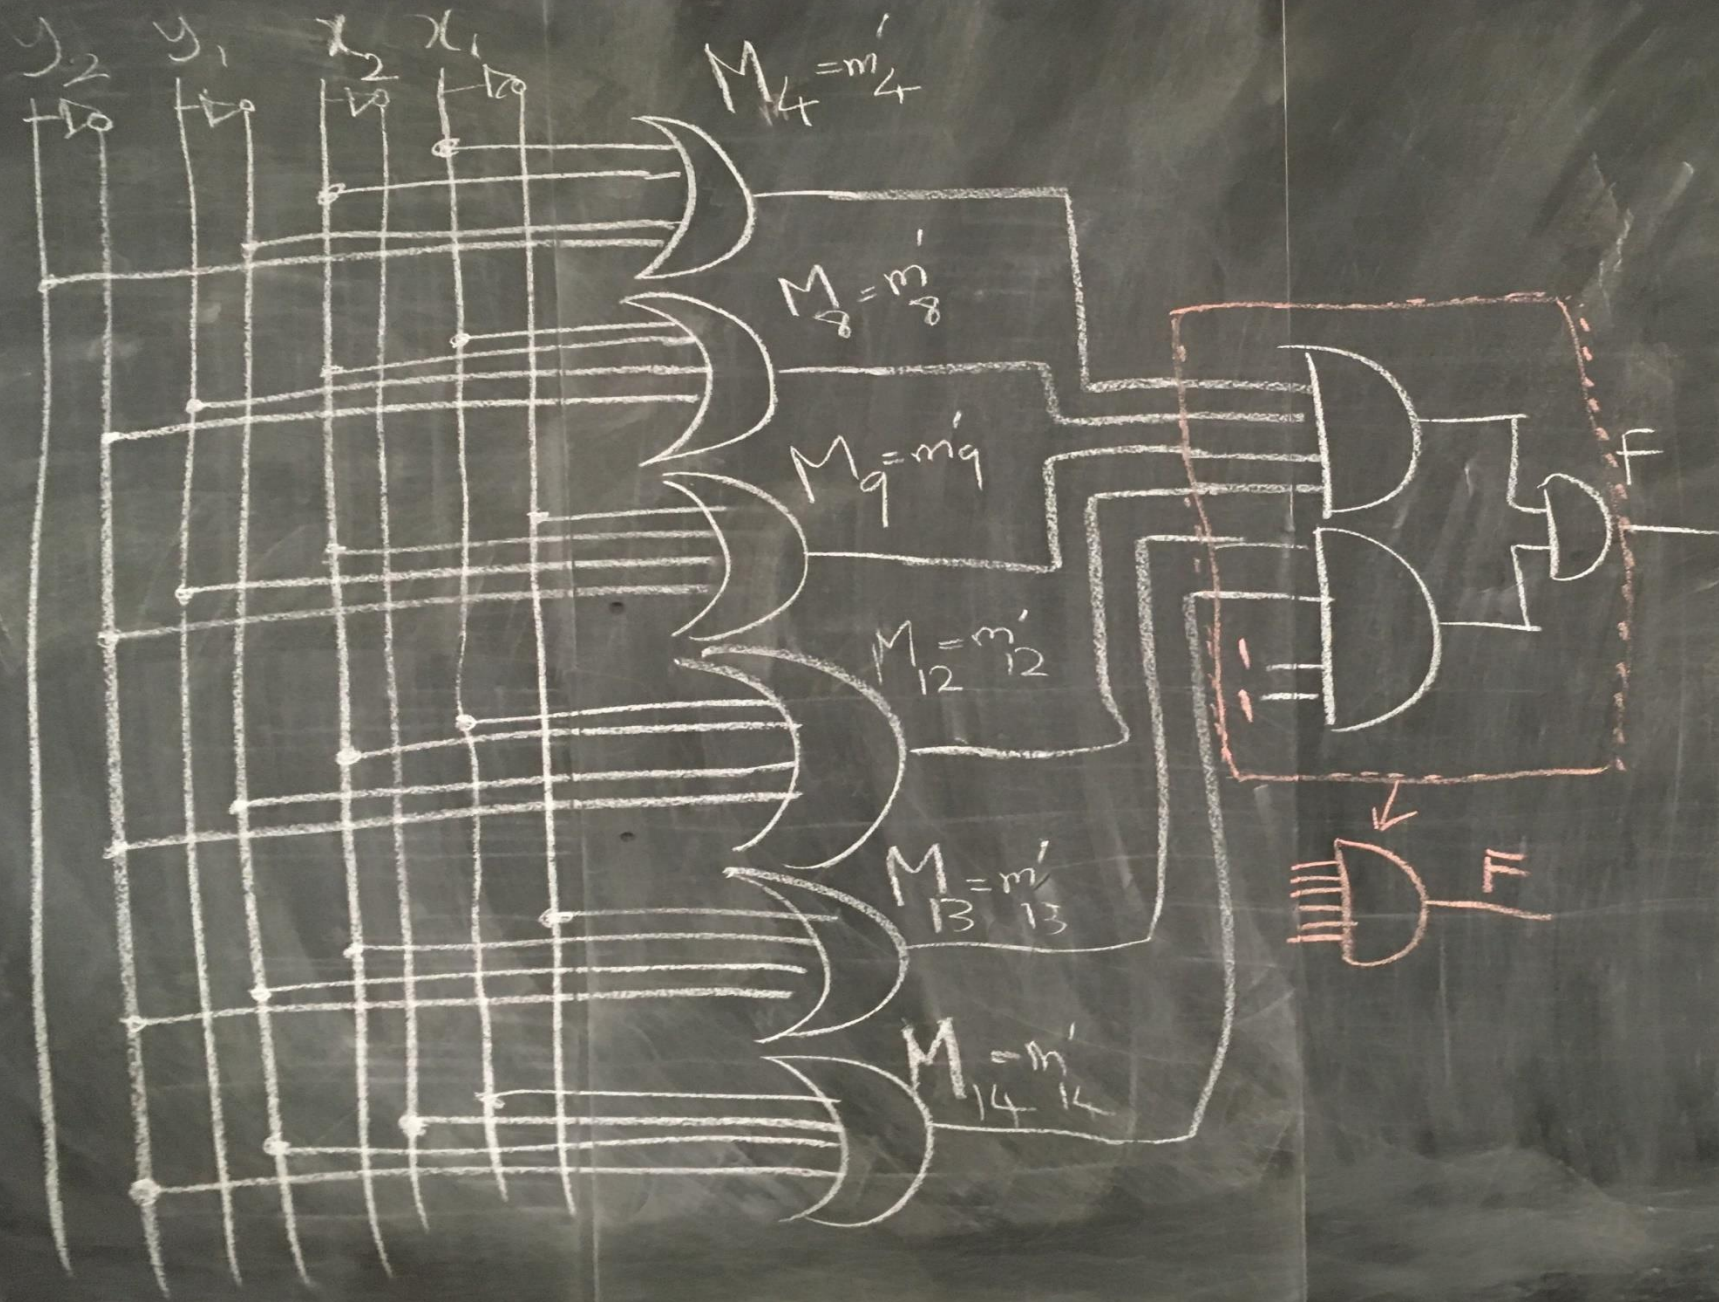 y₂ y₁ x₂ x₁
M₄ = m₄'
M₈ = m₈'
M₉ = m₉'
F
M₁₂ = m₁₂'
M₁₃ = m₁₃'
F
M₁₄ = m₁₄'